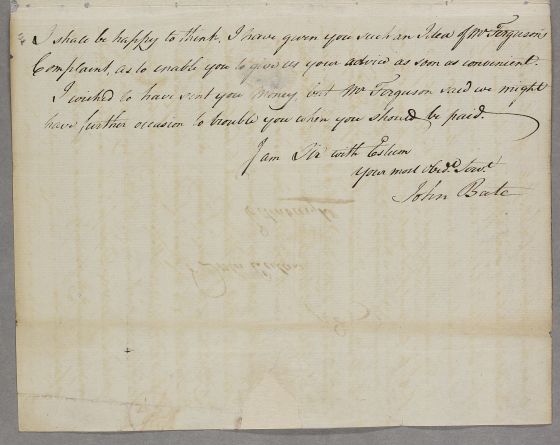 I shall be happy to think, I have given you such an Idea of Mr. Ferguson's
Complaint, as to enable you to give us your advice as soon as convenient.
I wished to have sent you money, but Mr. Ferguson said we might
have further occasion to trouble you when you should be paid.
I am Sir with Esteem
your most Obed.t Serv.t
John Bate